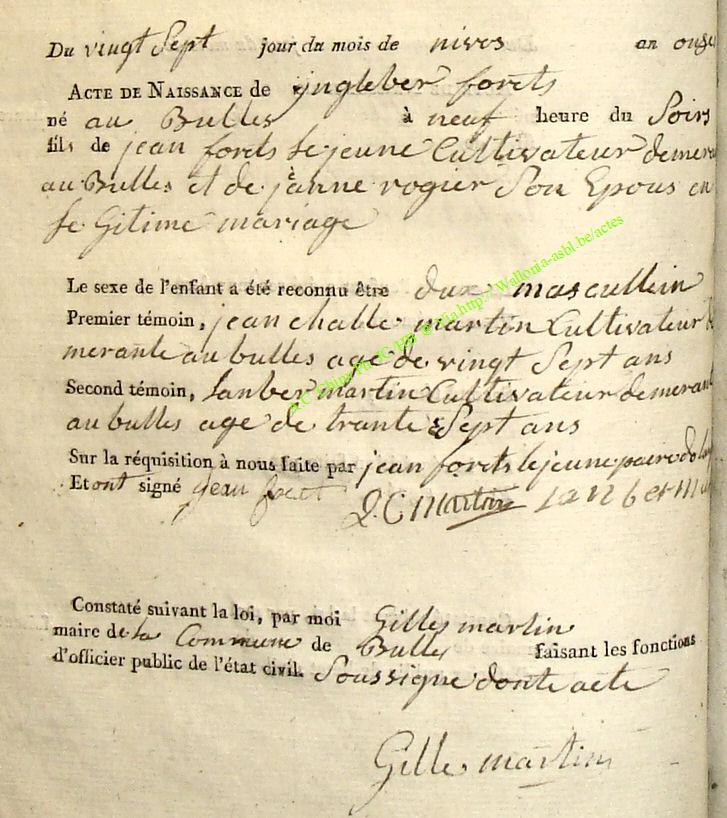 Du vingt Sept jour du mois de nivos an onze
ACTE DE NAISSANCE de yngleber forêts
né au Bulles à neuf heure du Soirs
fils de jean forêts le jeune Cultivateur demera
au Bulles et de janne rogier Son Epous en
le Gitime mariage
Le sexe de l'enfant a été reconnu être dux mascullein
Premier témoin, jean challe martin Cultivateur de
merante au bulles age de vingt Sept ans
Second témoin, lanber martin Cultivateur demerant
au bulles age de trante Sept ans
Sur la réquisition à nous faite par jean forêts le jeune paire
Et ont signé jean J.C Martin lanbert
Constaté suivant la loi, par moi Gilles martin
maire de la Commune de Bulles faisant les fonctions
d'officier public de l'état civil. Soussigne dont acte
Gille martin
http://Wallonia-asbl.be/actes